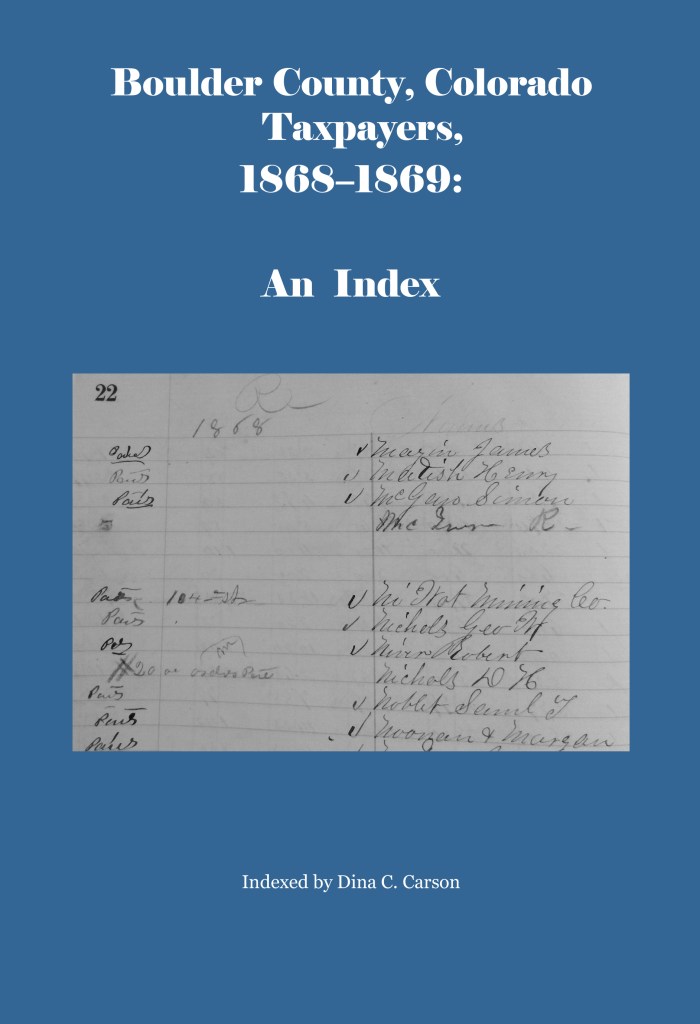 Boulder County, Colorado
Taxpayers,
1868–1869:
An Index
22
R
1868 Names
Paid ✓ Mazin James
Paid ✓ Matish Henry
Paid ✓ McGaw Simon
Mc R
Paid 104 ✓ Ni Wot Mining Co.
Paid ✓ Nichols Geo W
Pd ✓ Niver Robert
20 on
Nichols D H
Paid ✓ Noblet Saml T
Paid ✓ Noonan & Morgan
Paid
Indexed by Dina C. Carson